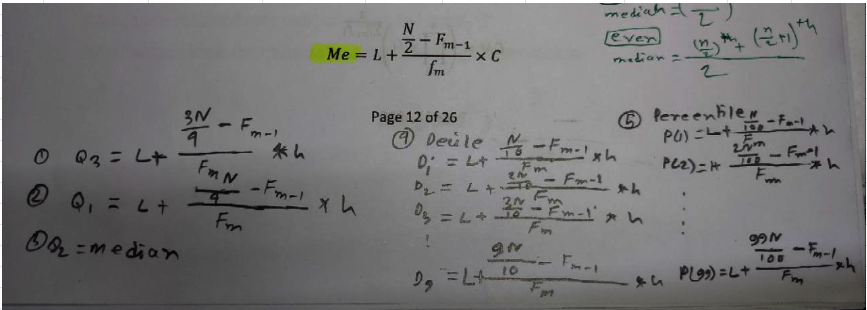 median = ( /2 )
even
median = (n/2)th + (n/2 + 1)th / 2
Me = L + (N/2 − Fm−1)/fm × C
Page 12 of 26
① Q3 = L + (3N/4 − Fm-1)/Fm * h
② Q1 = L + (N/4 − Fm-1)/Fm × h
③ Q2 = median
④ Decile
D1 = L + (N/10 − Fm-1)/Fm * h
D2 = L + (2N/10 − Fm-1)/Fm * h
D3 = L + (3N/10 − Fm-1)/Fm * h
D9 = L + (9N/10 − Fm-1)/Fm * h
⑤ Percentile
P(1) = L + (N/100 − Fm-1)/Fm * h
P(2) = + (2N/100 − Fm-1)/Fm * h
P(99) = L + (99N/100 − Fm-1)/Fm * h